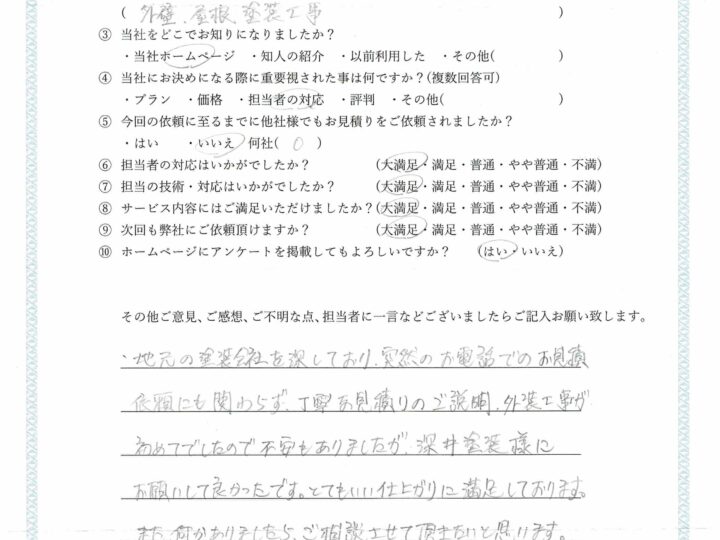 ( 外壁、屋根、塗装工事 )
③ 当社をどこでお知りになりましたか？
・当社ホームページ ・知人の紹介 ・以前利用した ・その他( )
④ 当社にお決めになる際に重要視された事は何ですか？(複数回答可)
・プラン ・価格 ・担当者の対応 ・評判 ・その他( )
⑤ 今回の依頼に至るまでに他社様でもお見積りをご依頼されましたか？
・はい ・いいえ 何社( 0 )
⑥ 担当者の対応はいかがでしたか？ (大満足・満足・普通・やや普通・不満)
⑦ 担当の技術・対応はいかがでしたか？ (大満足・満足・普通・やや普通・不満)
⑧ サービス内容にはご満足いただけましたか？(大満足・満足・普通・やや普通・不満)
⑨ 次回も弊社にご依頼頂けますか？ (大満足・満足・普通・やや普通・不満)
⑩ ホームページにアンケートを掲載してもよろしいですか？ (はい・いいえ)
その他ご意見、ご感想、ご不明な点、担当者に一言などございましたらご記入お願い致します。
・地元の塗装会社を探しており、突然のお電話でのお見積
依頼にも関わらず、丁寧お見積りのご説明、外装工事が
初めてでしたので不安もありましたが、深井塗装様に
お願いして良かったです。とてもいい仕上がりに満足しております。
また何かありましたら、ご相談させて頂きたいと思います。